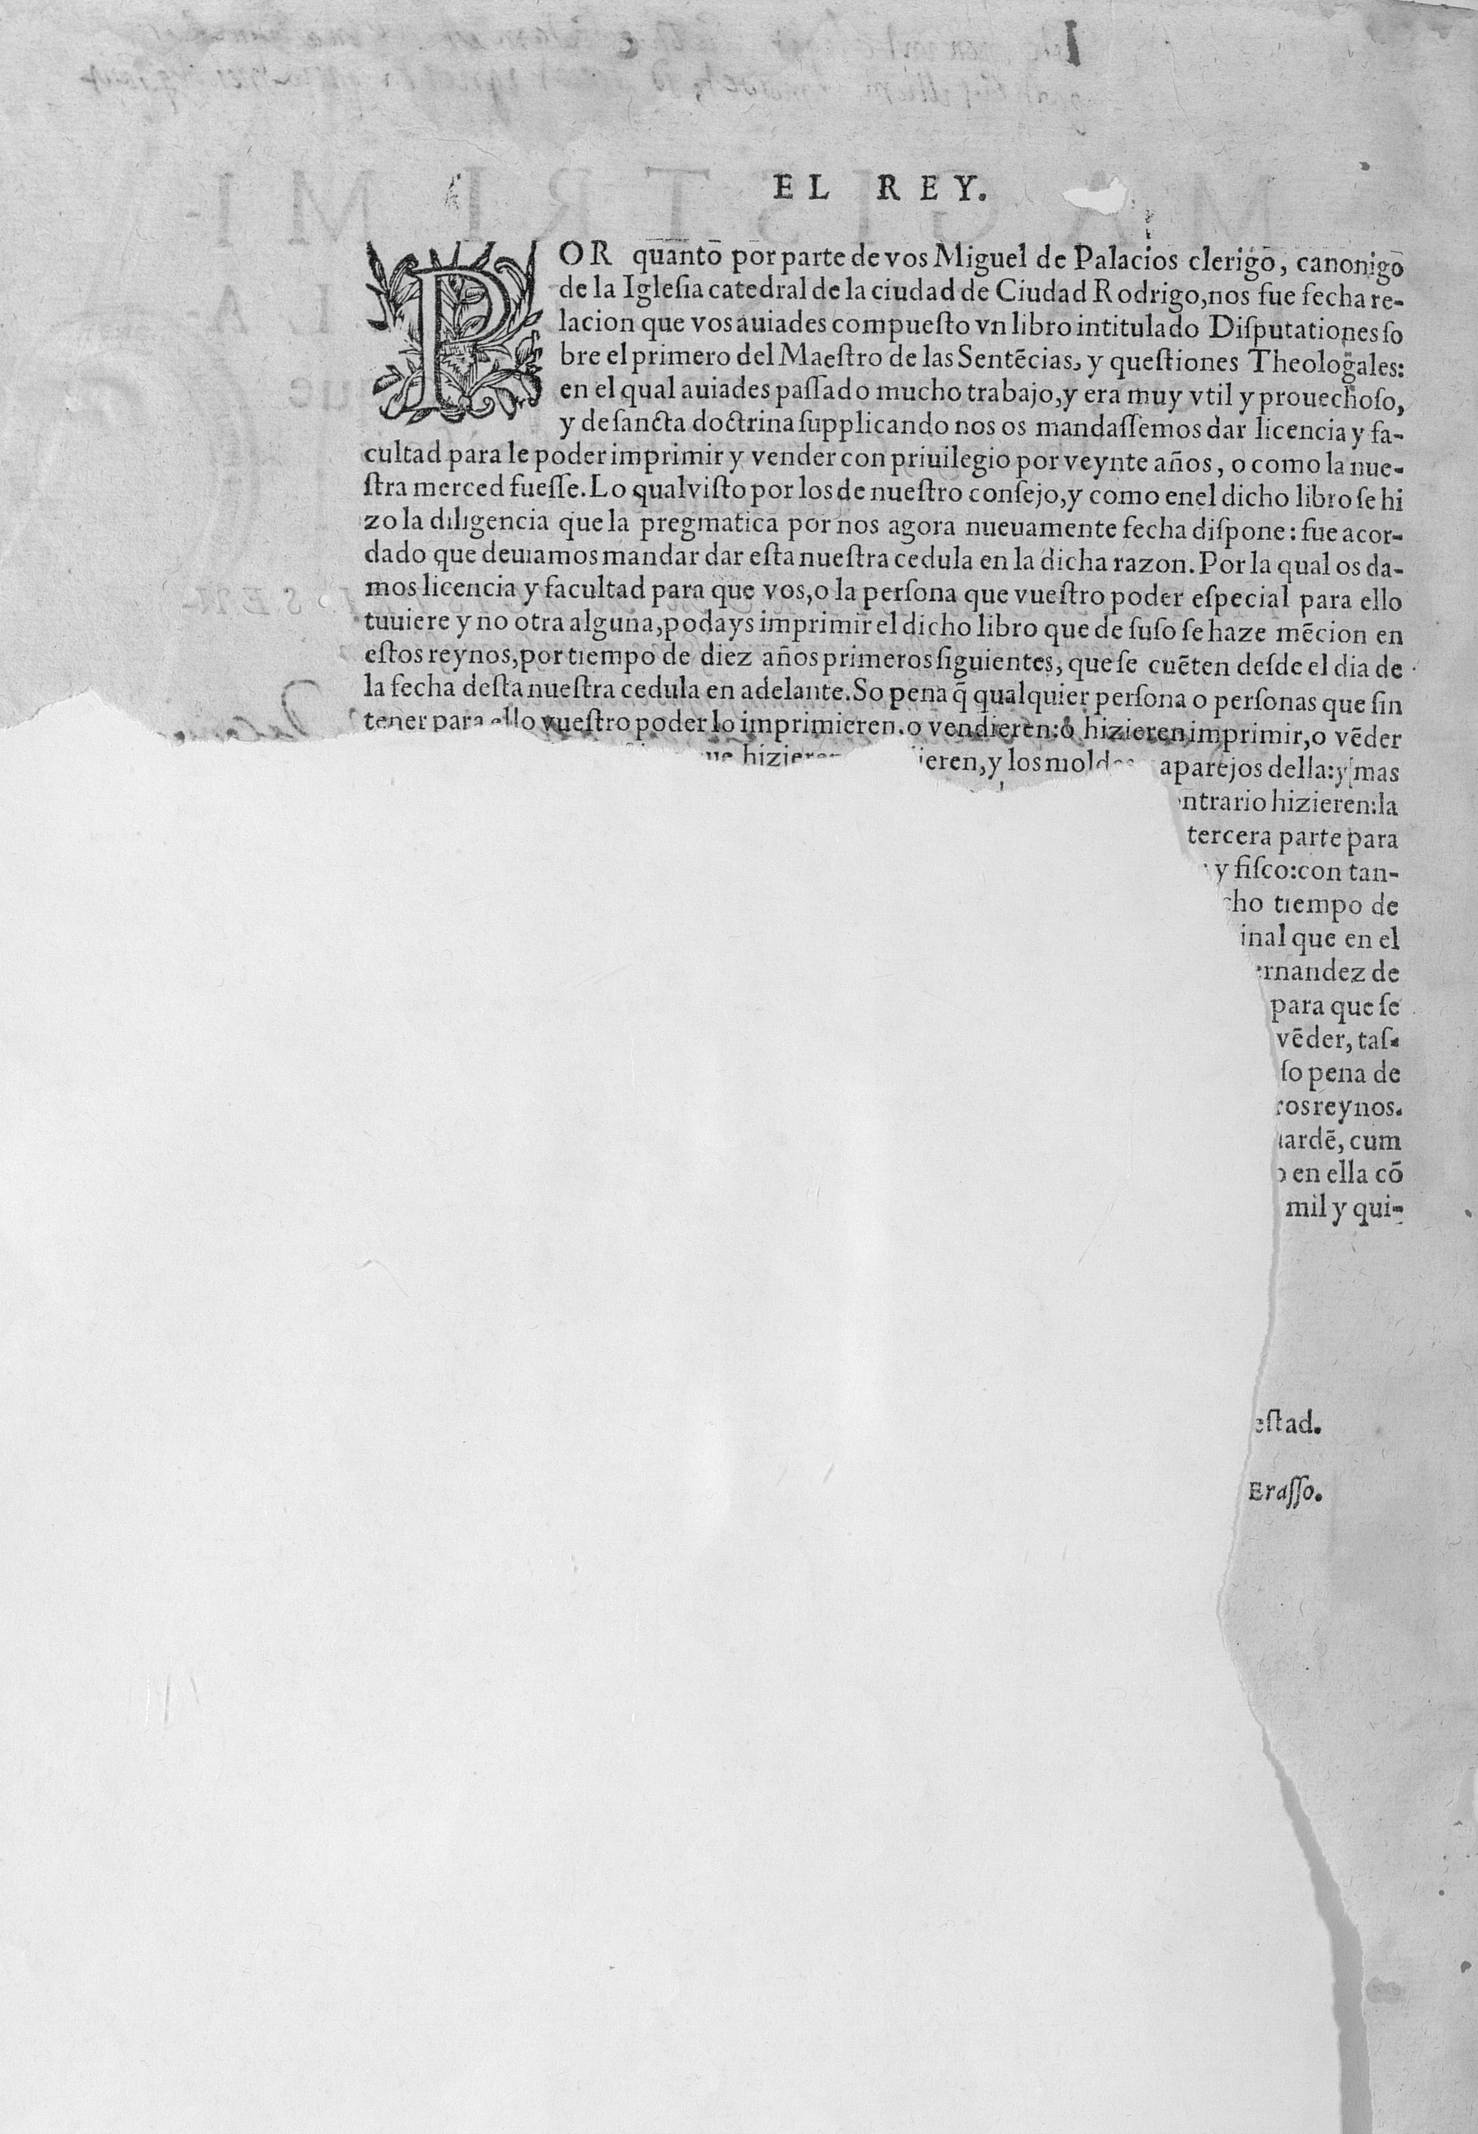 EL REY.
POR quanto por parte de vos Miguel de Palacios clerigo, canonigo
de la Igleſia catedral de la ciudad de Ciudad Rodrigo, nos fue fecha re-
lacion que vos auiades compueſto vn libro intitulado Diſputationes ſo
bre el primero del Maeſtro de las Sentēcias, y queſtiones Theologales:
en el qual auiades paſſado mucho trabajo, y era muy vtil y prouechoſo,
y de ſancta doctrina ſupplicando nos os mandaſſemos dar licencia y fa-
cultad para le poder imprimir y vender con priuilegio por veynte años, o como la nue-
ſtra merced fueſſe. Lo qual viſto por los de nueſtro conſejo, y como enel dicho libro ſe hi
zo la diligencia que la pregmatica por nos agora nueuamente fecha diſpone: fue acor-
dado que deuiamos mandar dar eſta nueſtra cedula en la dicha razon. Por la qual os da-
mos licencia y facultad para que vos, o la perſona que vueſtro poder eſpecial para ello
tuuiere y no otra alguna, podays imprimir el dicho libro que de ſuſo ſe haze mēcion en
eſtos reynos, por tiempo de diez años primeros ſiguientes, que ſe cuēten deſde el dia de
la fecha deſta nueſtra cedula en adelante. So pena q̄ qualquier perſona o perſonas que ſin
tener para ello vueſtro poder lo imprimieren. o vendieren: o hizieren imprimir, o vēder
ue hizieren ieren, y los moldes aparejos della: y mas
ntrario hizieren: la
tercera parte para
y fiſco: con tan-
cho tiempo de
inal que en el
ernandez de
para que ſe
vēder, taſ-
ſo pena de
ros reynos.
uardē, cum
o en ella cō
mil y qui-
eſtad.
Eraſſo.